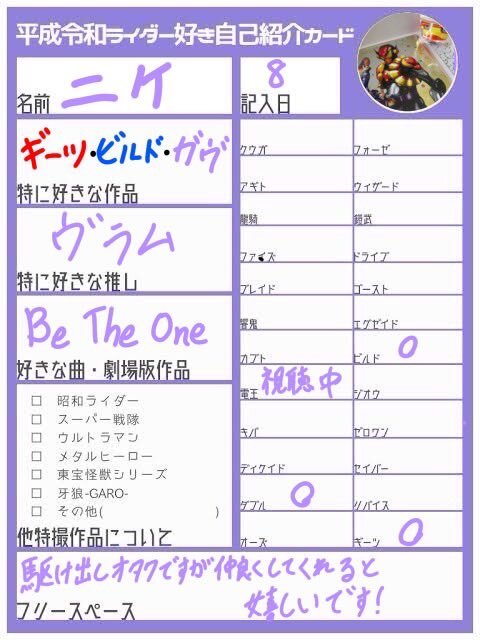 平成令和ライダー好き自己紹介カード
ニケ
名前
8
記入日
ギーツ・ビルド・ガヴ
特に好きな作品
ヴラム
特に好きな推し
Be The One
好きな曲・劇場版作品
□ 昭和ライダー
□ スーパー戦隊
□ ウルトラマン
□ メタルヒーロー
□ 東宝怪獣シリーズ
□ 牙狼-GARO-
□ その他( )
他特撮作品について
クウガ
アギト
龍騎
ファイズ
ブレイド
響鬼
カブト
視聴中
電王
キバ
ディケイド
ダブル ○
オーズ
フォーゼ
ウィザード
鎧武
ドライブ
ゴースト
エグゼイド
ビルド ○
ジオウ
ゼロワン
セイバー
リバイス
ギーツ ○
駆け出しオタクですが仲良くしてくれると
嬉しいです!
フリースペース